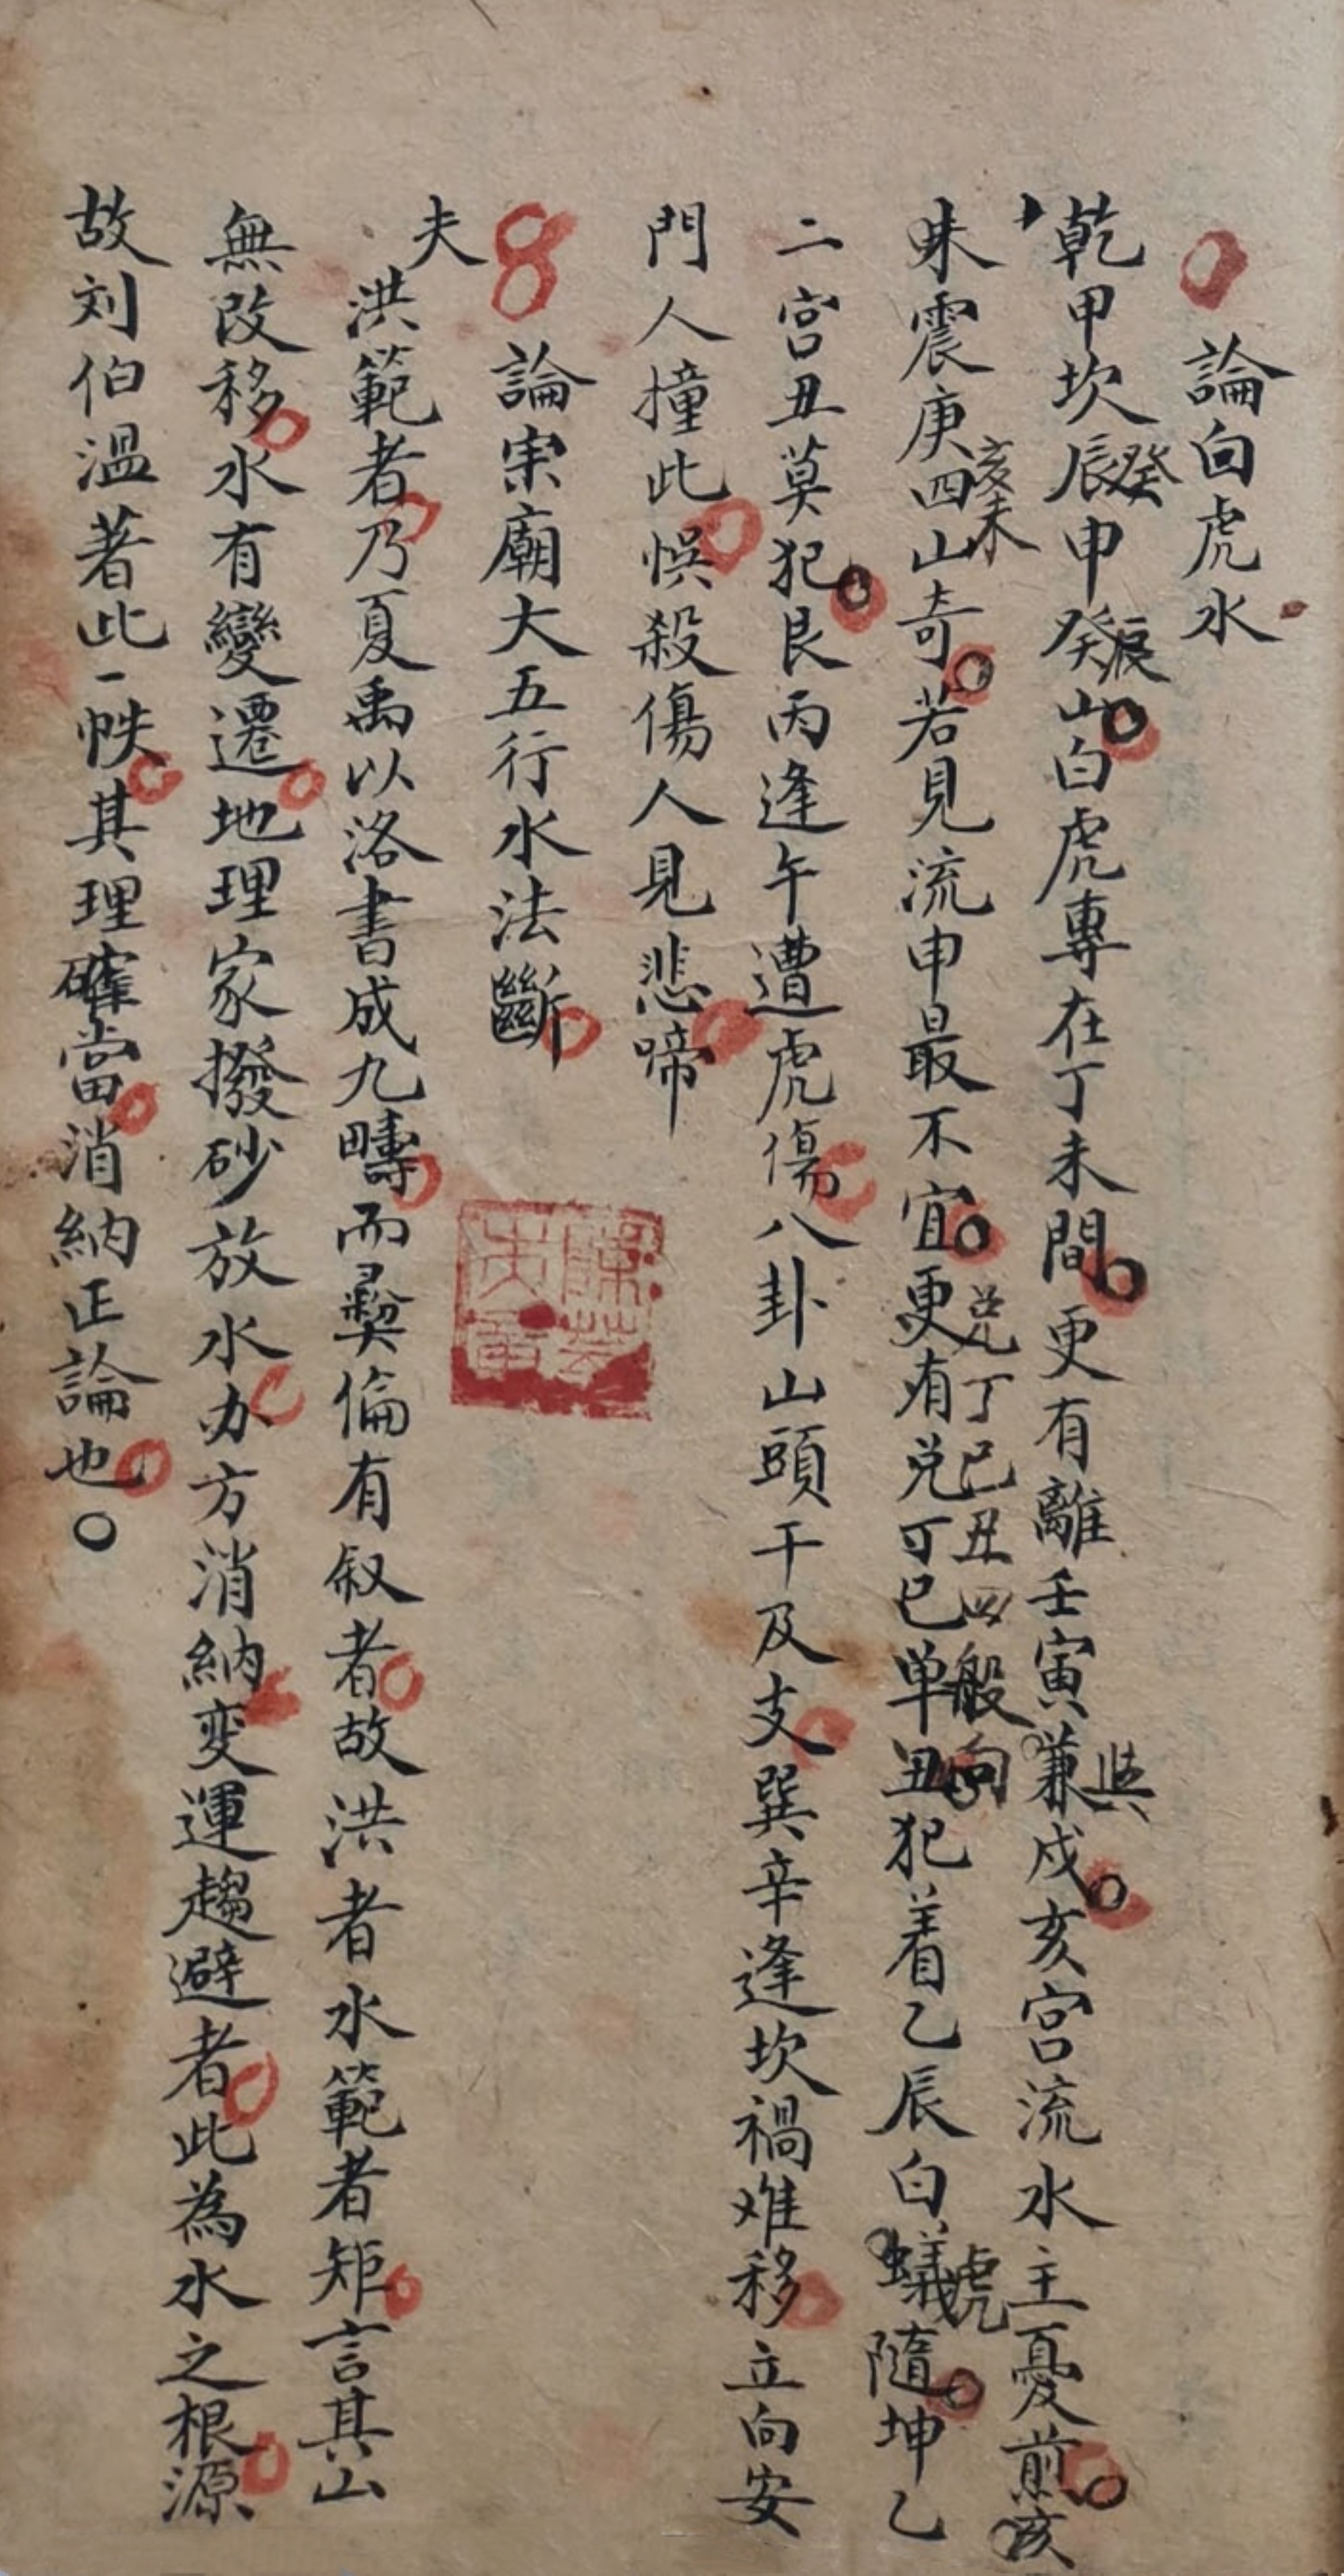 論白虎水
乾甲坎辰癸申癸辰山白虎專在丁未間更有離壬寅兼與戌亥宮流水主憂煎亥
未震庚四亥未山奇若見流申最不宜更有兌丁巳單丑犯着乙辰白蟻虎隨坤乙
兌丁巳丑四般向
二宮丑莫犯艮丙逢午遭虎傷八卦山頭干及支巽辛逢坎禍难移立向安
門人撞此悞殺傷人見悲啼
論宗廟大五行水法斷
夫
洪範者乃夏禹以洛書成九疇而彛倫有叙者故洪者水範者矩言其山
無改移水有變遷地理家撥砂放水办方消納变運趨避者此為水之根源
故刘伯溫著此一帙其理確當消納正論也